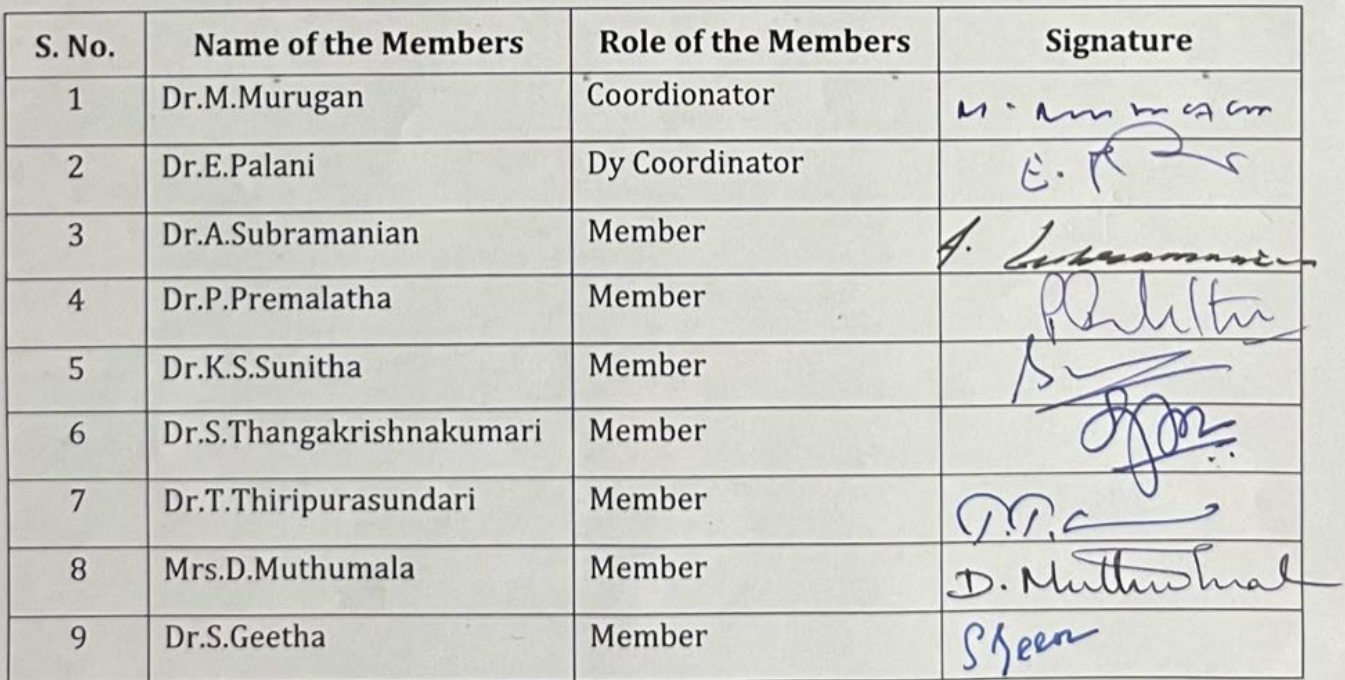 S. No. Name of the Members Role of the Members Signature
1 Dr.M.Murugan Coordionator
2 Dr.E.Palani Dy Coordinator E.
3 Dr.A.Subramanian Member A. Subramanian
4 Dr.P.Premalatha Member
5 Dr.K.S.Sunitha Member
6 Dr.S.Thangakrishnakumari Member
7 Dr.T.Thiripurasundari Member
8 Mrs.D.Muthumala Member D. Muthumal
9 Dr.S.Geetha Member